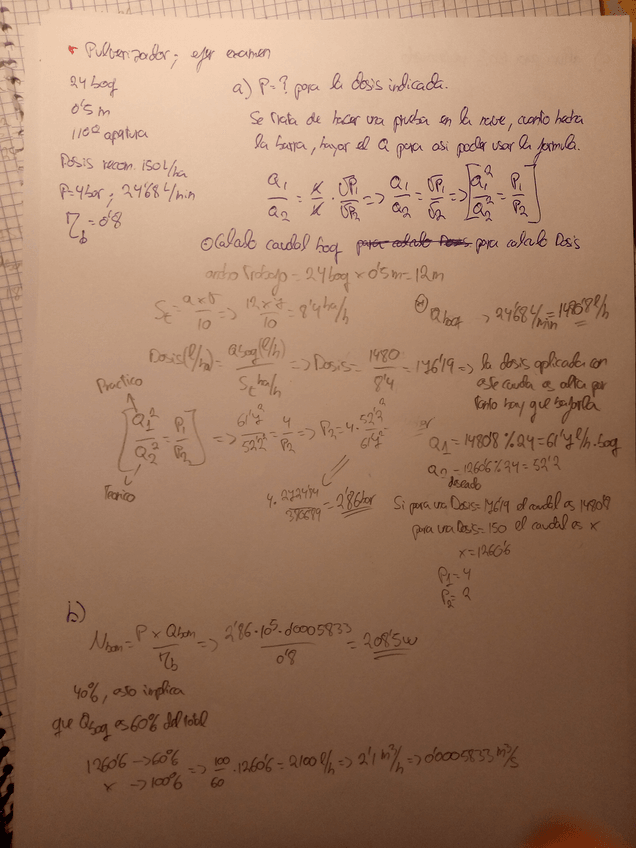 • Pulverizador; ejer examen
24 boq
0'5 m
110º apertura
Dosis recom. 150 L/ha
P=4 bar; 24'68 L/min
η_b = 0'8
a) P=? para la dosis indicada.
Se trata de hacer una prueba en la nave, cuanto hecha
la barra, hayar el Q para asi poder usar la formula.
Q1/Q2 = K/K · √P1/√P2 => Q1/Q2 = √P1/√P2 => [Q1²/Q2² = P1/P2]
Calculo caudal boq para calculo Dosis para calculo Dosis
ancho Trabajo = 24 boq x 0'5 m = 12 m
St = a x v/10 => 12 x 7/10 = 8'4 ha/h
Qboq => 24'68 L/min = 1480'8 l/h
Dosis (l/ha) = Qboq (l/h)/St ha/h => Dosis = 1480/8'4 = 176'19 => la dosis aplicada con
este caudal es alta por
tanto hay que bajarla
Practico
[Q1²/Q2² = P1/P2] => 61'7²/52'2² = 4/P2 => P2 = 4 · 52'2²/61'7² =
Teorico
Q1 = 1480'8 % 24 = 61'7 l/h · boq
Q2 = 1260'6 % 24 = 52'2
deseado
4 · 2724'84/3806'89 = 2'86 bar
Si para una Dosis = 176'19 el caudal es 1480'8
para una Dosis = 150 el caudal es x
x = 1260'6
P1 = 4
P2 = ?
b)
Nbom = P x Qbom/ηb => 2'86 · 10⁵ · 0'0005833/0'8 = 208'5 w
40%, esto implica
que Qboq es 60% del total
1260'6 -> 60%
x -> 100% => 100/60 · 1260'6 = 2100 l/h => 2'1 m³/h => 0'0005833 m³/s